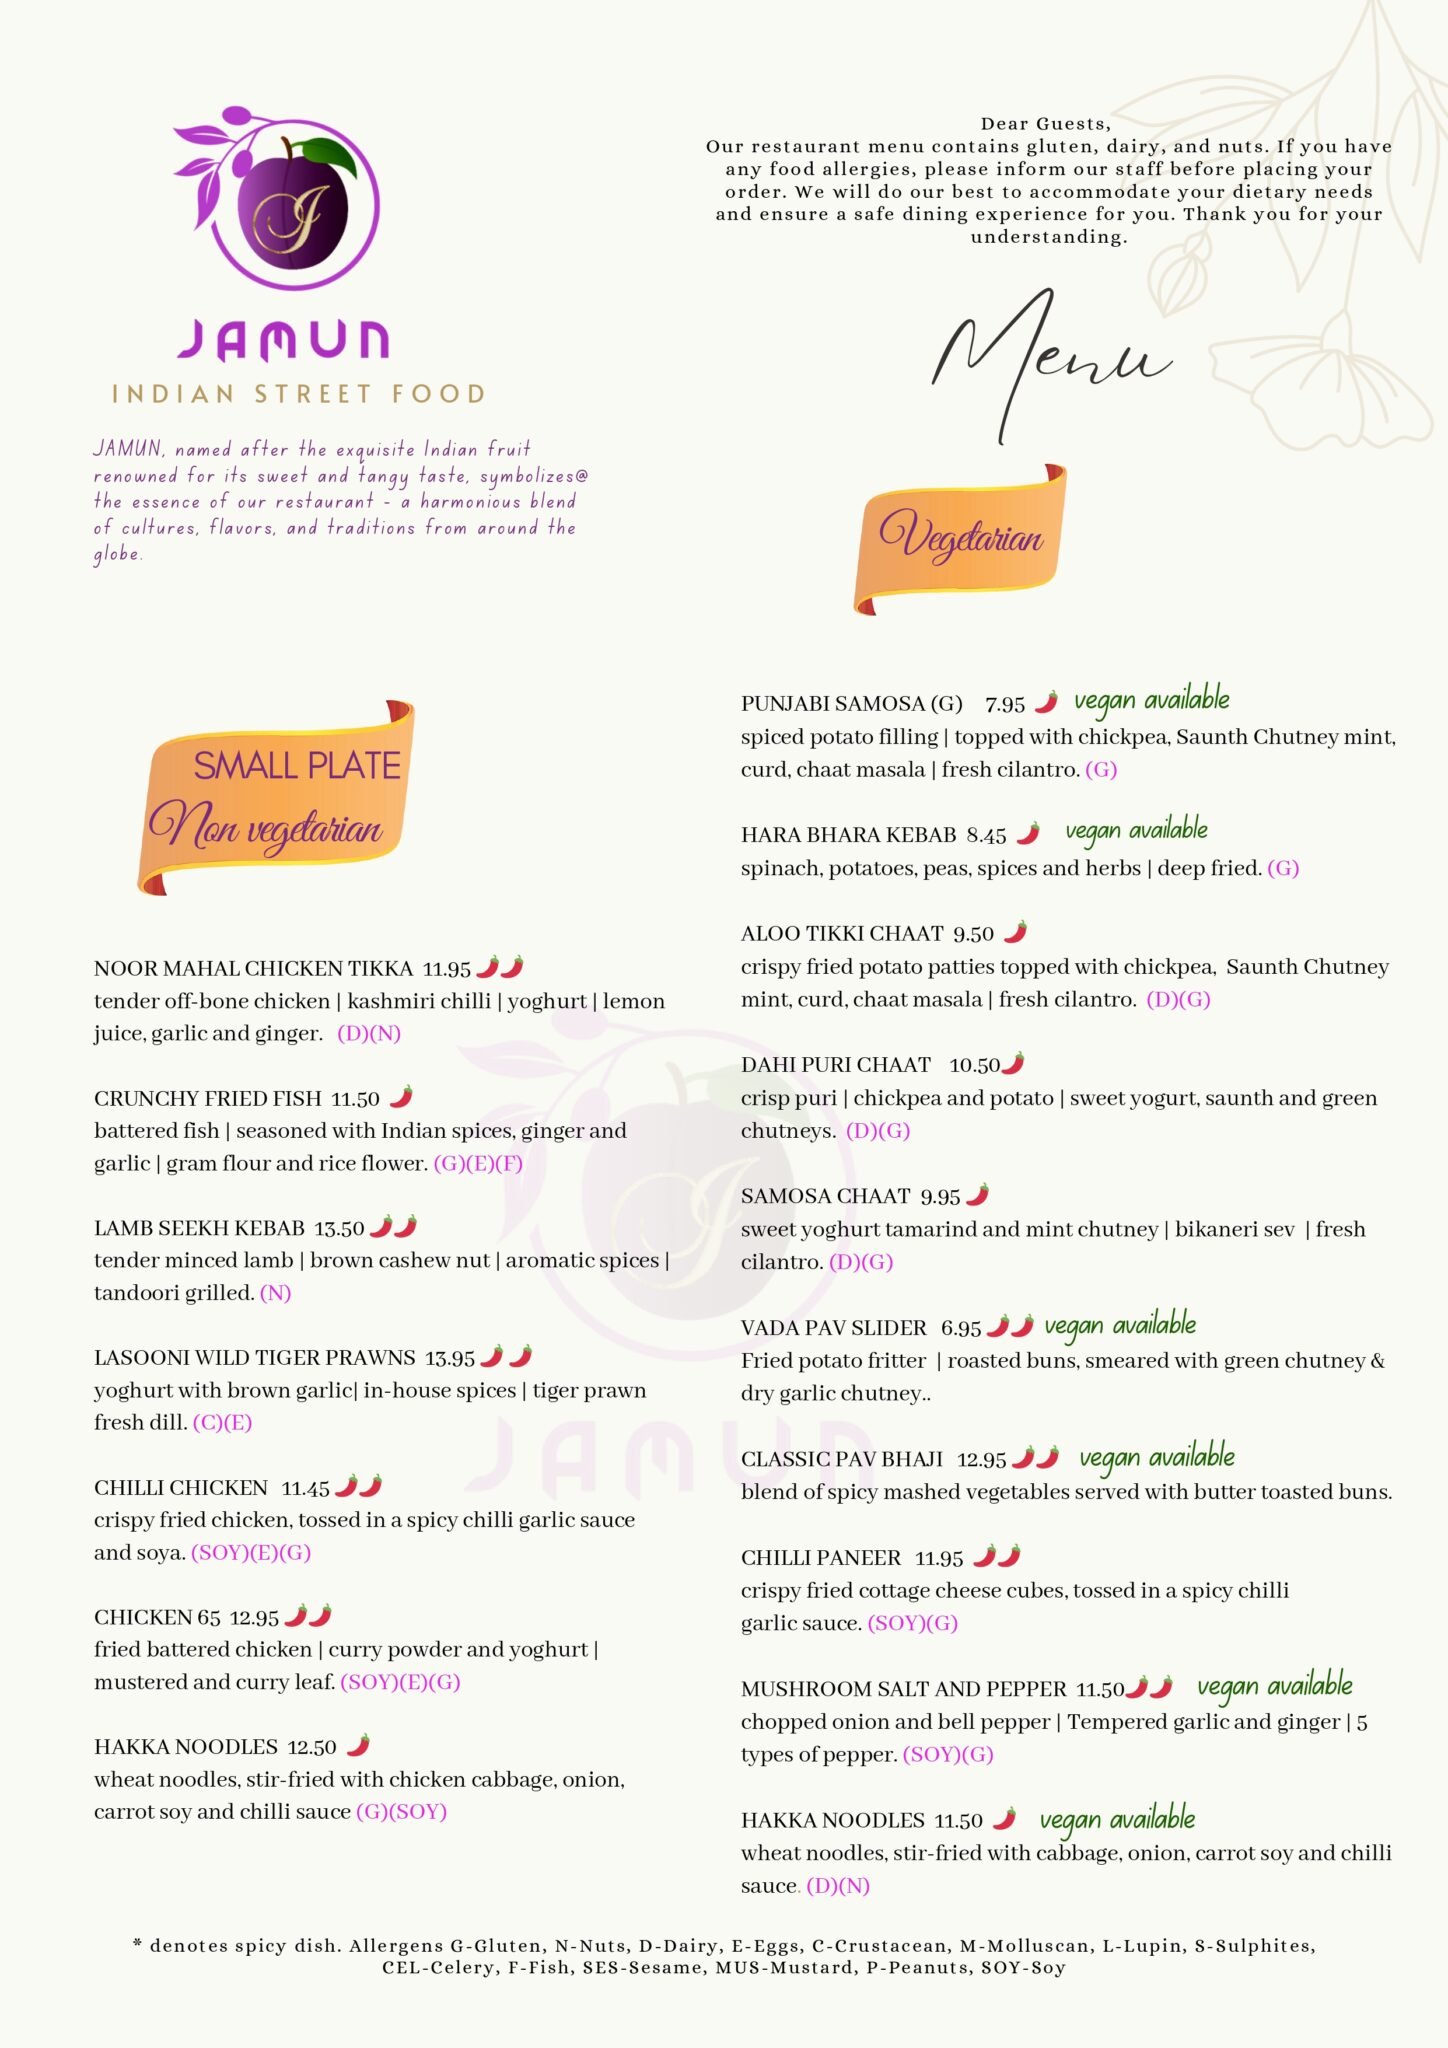 JAMUN
INDIAN STREET FOOD
JAMUN, named after the exquisite Indian fruit
renowned for its sweet and tangy taste, symbolizes@
the essence of our restaurant - a harmonious blend
of cultures, flavors, and traditions from around the
globe.
Dear Guests,
Our restaurant menu contains gluten, dairy, and nuts. If you have
any food allergies, please inform our staff before placing your
order. We will do our best to accommodate your dietary needs
and ensure a safe dining experience for you. Thank you for your
understanding.
Menu
SMALL PLATE
Non vegetarian
NOOR MAHAL CHICKEN TIKKA 11.95
tender off-bone chicken | kashmiri chilli | yoghurt | lemon
juice, garlic and ginger. (D)(N)
CRUNCHY FRIED FISH 11.50
battered fish | seasoned with Indian spices, ginger and
garlic | gram flour and rice flower. (G)(E)(F)
LAMB SEEKH KEBAB 13.50
tender minced lamb | brown cashew nut | aromatic spices |
tandoori grilled. (N)
LASOONI WILD TIGER PRAWNS 13.95
yoghurt with brown garlic| in-house spices | tiger prawn
fresh dill. (C)(E)
CHILLI CHICKEN 11.45
crispy fried chicken, tossed in a spicy chilli garlic sauce
and soya. (SOY)(E)(G)
CHICKEN 65 12.95
fried battered chicken | curry powder and yoghurt |
mustered and curry leaf. (SOY)(E)(G)
HAKKA NOODLES 12.50
wheat noodles, stir-fried with chicken cabbage, onion,
carrot soy and chilli sauce (G)(SOY)
Vegetarian
PUNJABI SAMOSA (G) 7.95 vegan available
spiced potato filling | topped with chickpea, Saunth Chutney mint,
curd, chaat masala | fresh cilantro. (G)
HARA BHARA KEBAB 8.45 vegan available
spinach, potatoes, peas, spices and herbs | deep fried. (G)
ALOO TIKKI CHAAT 9.50
crispy fried potato patties topped with chickpea, Saunth Chutney
mint, curd, chaat masala | fresh cilantro. (D)(G)
DAHI PURI CHAAT 10.50
crisp puri | chickpea and potato | sweet yogurt, saunth and green
chutneys. (D)(G)
SAMOSA CHAAT 9.95
sweet yoghurt tamarind and mint chutney | bikaneri sev | fresh
cilantro. (D)(G)
VADA PAV SLIDER 6.95 vegan available
Fried potato fritter | roasted buns, smeared with green chutney &
dry garlic chutney..
CLASSIC PAV BHAJI 12.95 vegan available
blend of spicy mashed vegetables served with butter toasted buns.
CHILLI PANEER 11.95
crispy fried cottage cheese cubes, tossed in a spicy chilli
garlic sauce. (SOY)(G)
MUSHROOM SALT AND PEPPER 11.50 vegan available
chopped onion and bell pepper | Tempered garlic and ginger | 5
types of pepper. (SOY)(G)
HAKKA NOODLES 11.50 vegan available
wheat noodles, stir-fried with cabbage, onion, carrot soy and chilli
sauce. (D)(N)
JAMUN
* denotes spicy dish. Allergens G-Gluten, N-Nuts, D-Dairy, E-Eggs, C-Crustacean, M-Molluscan, L-Lupin, S-Sulphites,
CEL-Celery, F-Fish, SES-Sesame, MUS-Mustard, P-Peanuts, SOY-Soy